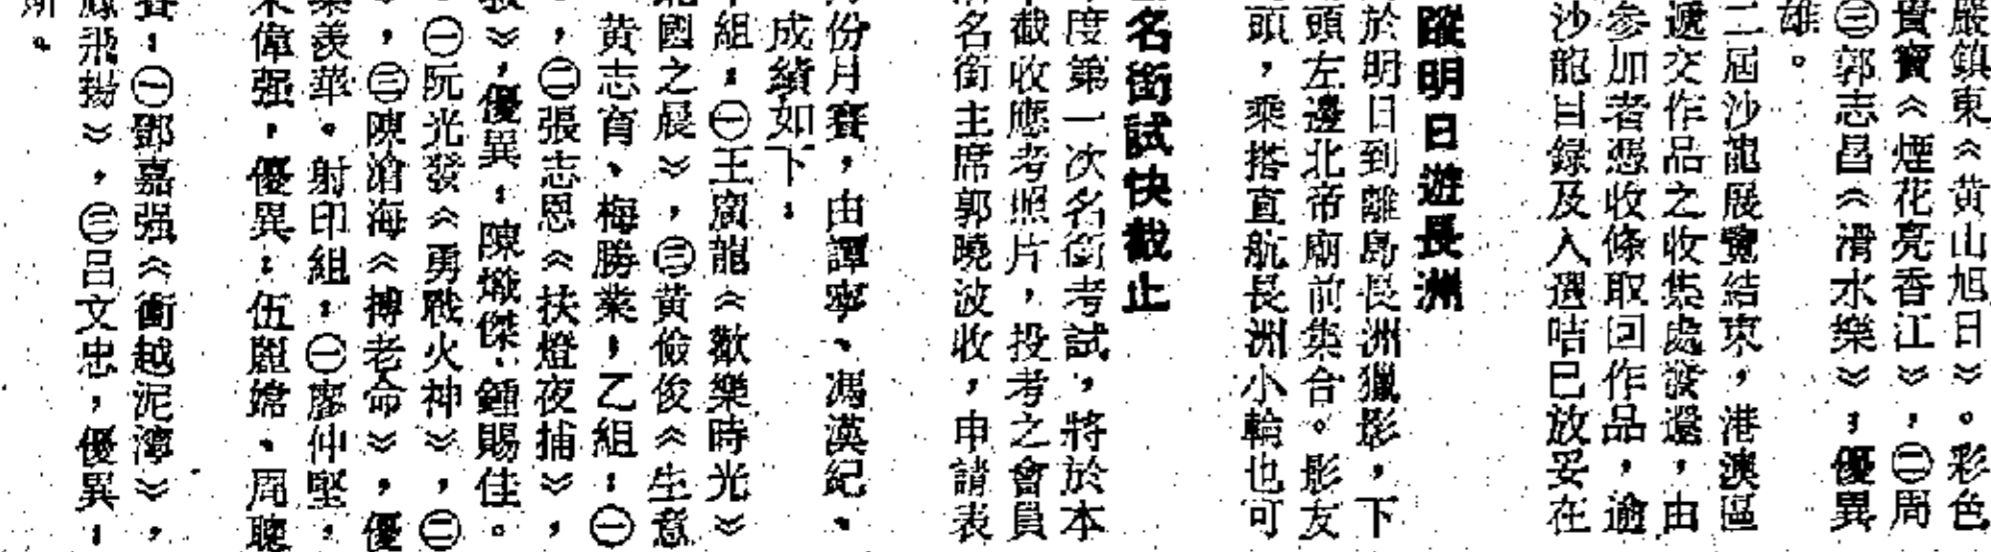 嚴鎮東《黄山旭日》。彩色
賓《煙花亮香江》，㊁周
㊂郭志昌《滑水樂》；優異
雄。
二屆沙龍展覽結束，港澳區
遞交作品之收集處發還，由
参加者憑收條取回作品，逾
沙龍目録及入選咭已放妥在
蹤明日遊長洲
於明日到離島長洲獵影，下
頭左邊北帝廟前集合。影友
頭，乘搭直航長洲小輪也可
名銜試快截止
度第一次名銜考試，將於本
截收應考照片，投考之會員
名銜主席郭曉波收，申請表
份月賽，由譚寧、馮漢紀、
成績如下：
組：㊀王廣龍《歡樂時光》
國之晨》，㊂黃儉俊《生意
黄志育、梅勝業；乙組：㊀
，㊁張志恩《扶燈夜捕》，
》，優異：陳熾傑、鍾賜佳。
㊀阮光發《勇戰火神》，㊁
，㊂陳滄海《搏老命》，優
羨華。射印組：㊀廖仲堅，
偉强，優異：伍麗嫦、周聰
賽：㊀鄧嘉强《衝越泥濘》，
鳳飛揚》，㊂呂文忠，優異：
。